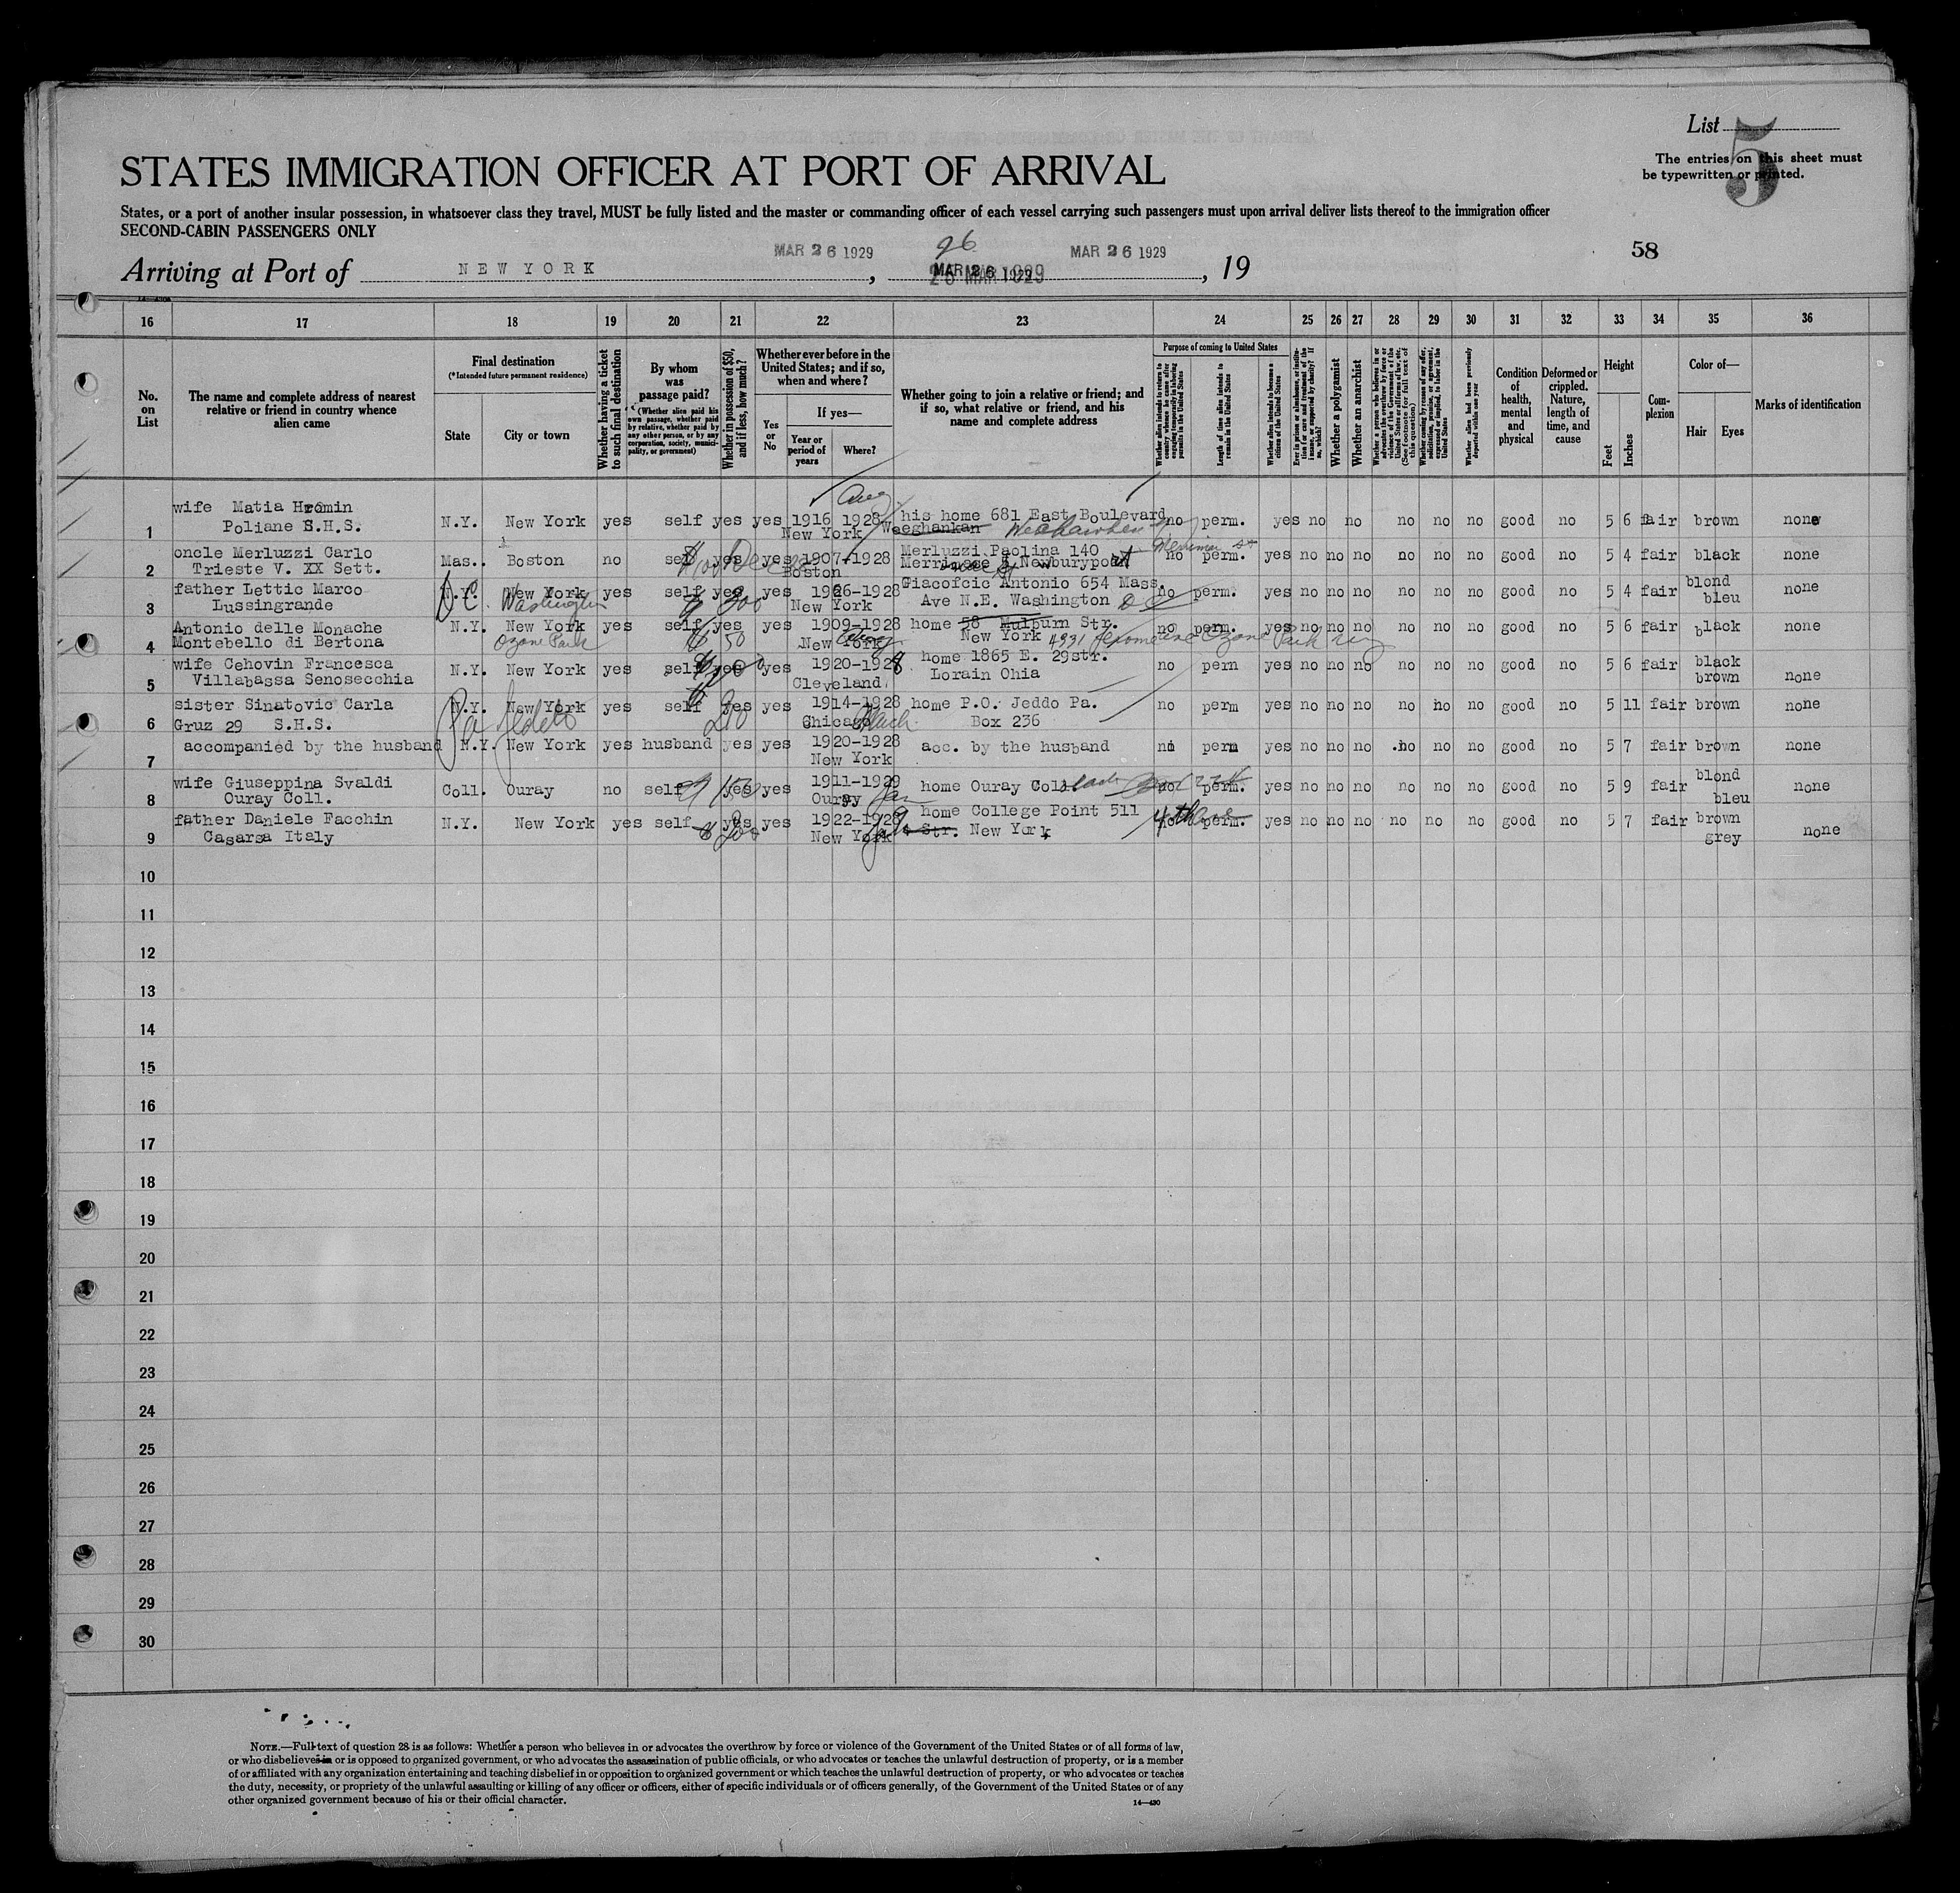 List
5
The entries on this sheet must
be typewritten or printed.
STATES IMMIGRATION OFFICER AT PORT OF ARRIVAL
States, or a port of another insular possession, in whatsoever class they travel, MUST be fully listed and the master or commanding officer of each vessel carrying such passengers must upon arrival deliver lists thereof to the immigration officer
SECOND-CABIN PASSENGERS ONLY
MAR 26 1929 26 MAR 26 1929 58
Arriving at Port of NEW YORK , MAR 26 1929 , 19
16 17 18 19 20 21 22 23 24 25 26 27 28 29 30 31 32 33 34 35 36
No. on List
The name and complete address of nearest relative or friend in country whence alien came
Final destination
(*Intended future permanent residence)
State
City or town
Whether having a ticket to such final destination
By whom was passage paid?
(Whether alien paid his own passage, whether paid by relative, whether paid by any other person, or by any corporation, society, municipality, or government)
Whether in possession of $50, and if less, how much?
Whether ever before in the United States; and if so, when and where?
Yes or No
If yes—
Year or period of years
Where?
Whether going to join a relative or friend; and if so, what relative or friend, and his name and complete address
Purpose of coming to United States
Whether alien intends to return to country whence he came after engaging temporarily in laboring pursuits in the United States
Length of time alien intends to remain in the United States
Whether alien intends to become a citizen of the United States
Ever in prison or almshouse, or institution for care and treatment of the insane, or supported by charity? If so, which?
Whether a polygamist
Whether an anarchist
Whether a person who believes in or advocates the overthrow by force or violence of the Government of the United States or all forms of law, etc. (See footnote for full text of this question)
Whether coming by reason of any offer, solicitation, promise, or agreement, expressed or implied, to labor in the United States
Whether alien had been previously deported within one year
Condition of health, mental and physical
Deformed or crippled. Nature, length of time, and cause
Height
Feet
Inches
Complexion
Color of—
Hair
Eyes
Marks of identification
1 wife Matia Hromin N.Y. New York yes self yes yes 1916 1928 his home 681 East Boulevard no perm. yes no no no no no good no 5 6 fair brown none
Poliane S.H.S. New York Weeghankan Weehawken
2 oncle Merluzzi Carlo Mas.. Boston no self yes yes 1907-1928 Merluzzi Paolina 140 no perm. yes no no no no no no good no 5 4 fair black none
Trieste V. XX Sett. Boston Newburyport
3 father Lettic Marco N.Y. New York yes self yes yes 1926-1928 Giacofcic Antonio 654 Mass. no perm. yes no no no no no no good no 5 4 fair blond none
Lussingrande D.C. Washington New York Ave N.E. Washington D C bleu
4 Antonio delle Monache N.Y. New York yes self yes yes 1909-1928 home 58 Mulpurn Str. no perm. yes no no no no no no good no 5 6 fair black none
Montebello di Bertona Ozone Park 50 New York New York 4931 Jerome ave Ozone Park
5 wife Cehovin Francesca N.Y. New York yes self yes yes 1920-1928 home 1865 E. 29str. no pern yes no no no no no no good no 5 6 fair black
Villabassa Senosecchia Cleveland Lorain Ohia brown none
6 sister Sinatovic Carla N.Y. New York yes self yes yes 1914-1928 home P.O. Jeddo Pa. no perm yes no no no no no no good no 5 11 fair brown none
Gruz 29 S.H.S. Pa Jeddo Chicago Box 236
7 accompanied by the husband N.Y. New York yes husband yes yes 1920-1928 acc. by the husband no perm yes no no no no no no good no 5 7 fair brown none
New York
8 wife Giuseppina Svaldi Coll. Ouray no self yes yes 1911-1929 home Ouray Coll no perm. yes no no no no no no good no 5 9 fair blond none
Ouray Coll. Ouray Jan bleu
9 father Daniele Facchin N.Y. New York yes self yes yes 1922-1929 home College Point 511 no perm. yes no no no no no no good no 5 7 fair brown none
Casarsa Italy New York Str. New York 4th ave grey
10
11
12
13
14
15
16
17
18
19
20
21
22
23
24
25
26
27
28
29
30
NOTE.—Full text of question 28 is as follows: Whether a person who believes in or advocates the overthrow by force or violence of the Government of the United States or of all forms of law,
or who disbelieves in or is opposed to organized government, or who advocates the assassination of public officials, or who advocates or teaches the unlawful destruction of property, or is a member
of or affiliated with any organization entertaining and teaching disbelief in or opposition to organized government or which teaches the unlawful destruction of property, or who advocates or teaches
the duty, necessity, or propriety of the unlawful assaulting or killing of any officer or officers, either of specific individuals or of officers generally, of the Government of the United States or of any
other organized government because of his or their official character.
14—430